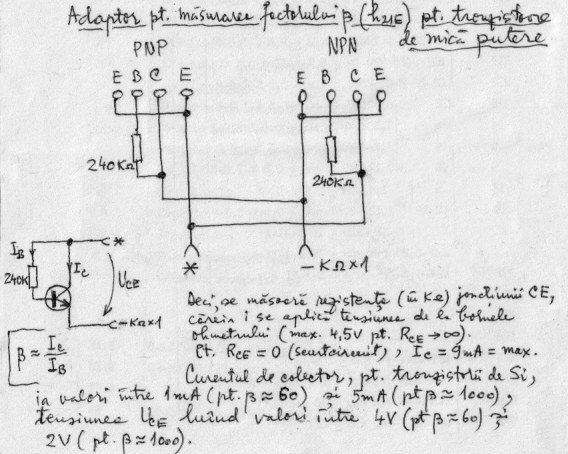 Adaptor pt. măsurarea factorului β (h21E) pt. tranzistoare
de mică putere.
PNP NPN
E B C E E B C E
240KΩ 240KΩ
* −KΩx1
IB IC *
240K UCE
−KΩx1
β ≈ IC/IB
Deci, se măsoară rezistența (în KΩ) joncțiunii CE,
căreia i se aplică tensiunea de la bornele
ohmetrului (max. 4,5V pt. RCE → ∞).
Pt. RCE = 0 (scurtcircuit), IC = 9mA = max.
Curentul de colector, pt. tranzistorii de Si,
ia valori între 1mA (pt. β ≈ 60) și 5mA (pt β ≈ 1000),
tensiunea UCE luând valori între 4V (pt β ≈ 60) și
2V (pt. β ≈ 1000).